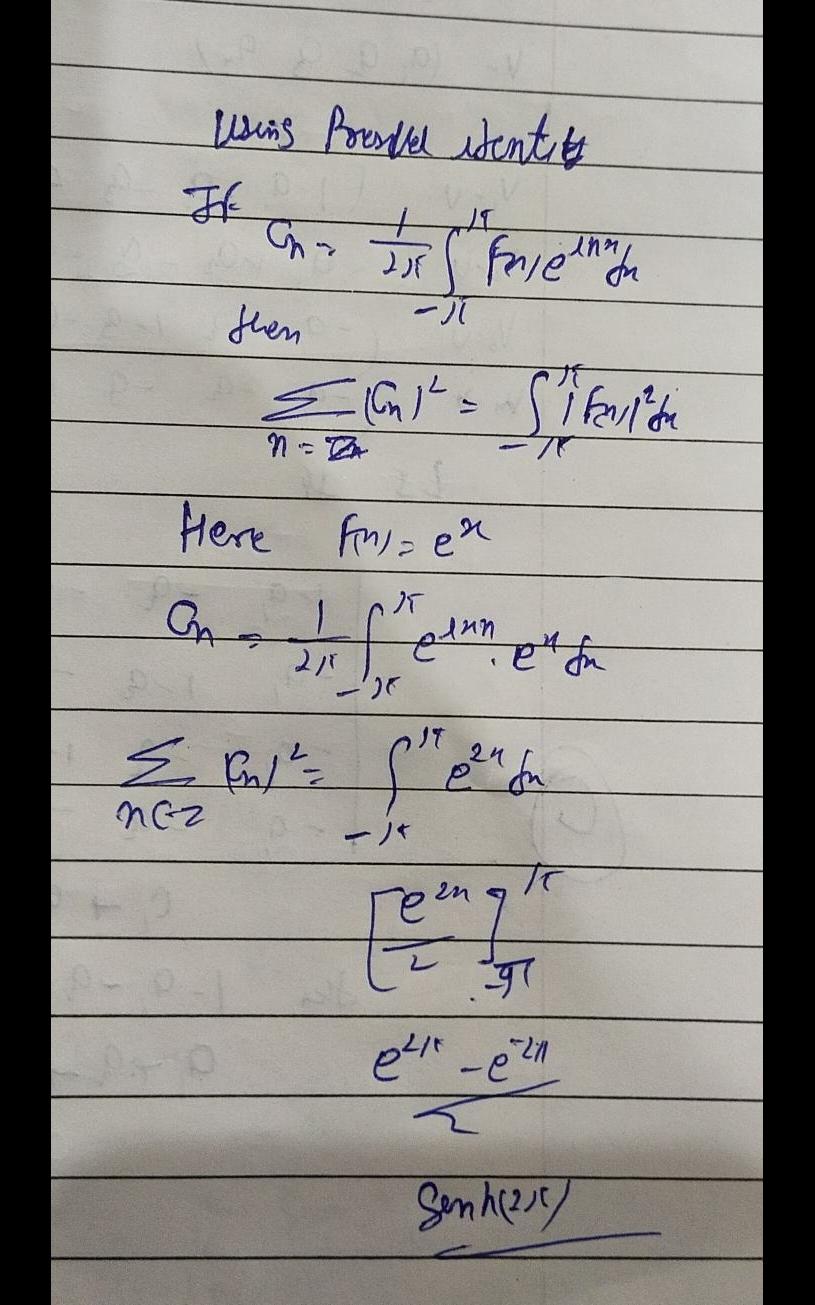 Using Parseval identity
If
Cn = 1/2π ∫_{-π}^{π} F(x) e^{inx} dx
then
∑_{n = Z} |Cn|² = ∫_{-π}^{π} |F(x)|² dx
Here F(x) = e^x
Cn = 1/2π ∫_{-π}^{π} e^{inx} . e^x dx
∑_{n∈Z} |Cn|² = ∫_{-π}^{π} e^{2x} dx
[e^{2x}/2]_{-π}^{π}
e^{2π} - e^{-2π}
2
Sinh(2π)